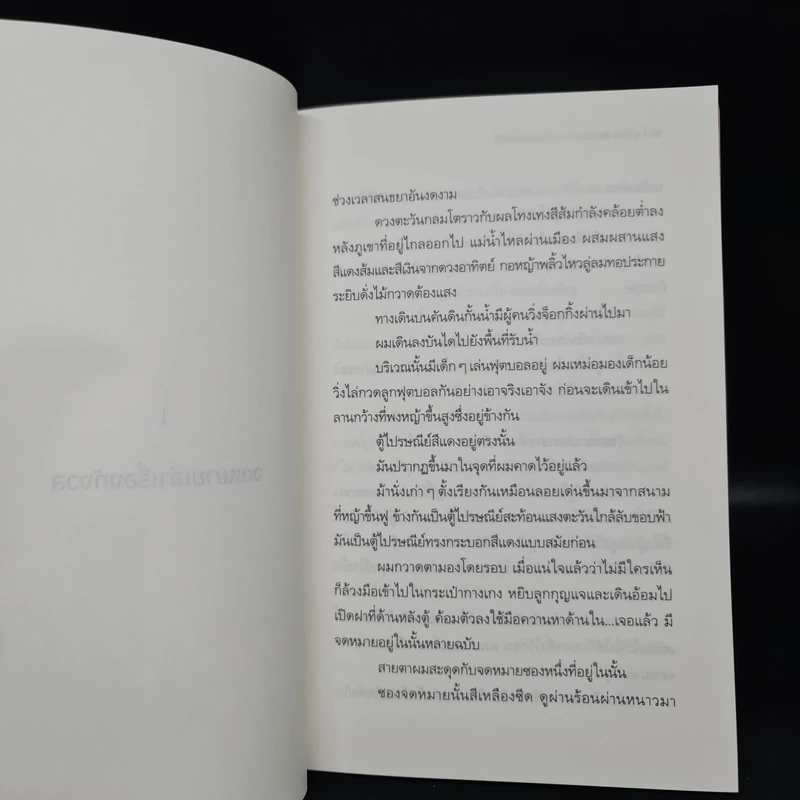 ช่วงเวลาสนธยาอันงดงาม
ดวงตะวันกลมโตราวกับผลโทงเทงสีส้มกำลังคล้อยต่ำลง
หลังภูเขาที่อยู่ไกลออกไป แม่น้ำไหลผ่านเมือง ผสมผสานแสง
สีแดงส้มและสีเงินจากดวงอาทิตย์ กอหญ้าพลิ้วไหวลู่ลมทอประกาย
ระยิบดั่งไม้กวาดต้องแสง
ทางเดินบนคันดินกั้นน้ำมีผู้คนวิ่งจ็อกกิ้งผ่านไปมา
ผมเดินลงบันไดไปยังพื้นที่รับน้ำ
บริเวณนั้นมีเด็กๆ เล่นฟุตบอลอยู่ ผมเหม่อมองเด็กน้อย
วิ่งไล่กวดลูกฟุตบอลกันอย่างเอาจริงเอาจัง ก่อนจะเดินเข้าไปใน
ลานกว้างที่พงหญ้าขึ้นสูงซึ่งอยู่ข้างกัน
ตู้ไปรษณีย์สีแดงอยู่ตรงนั้น
มันปรากฏขึ้นมาในจุดที่ผมคาดไว้อยู่แล้ว
ม้านั่งเก่าๆ ตั้งเรียงกันเหมือนลอยเด่นขึ้นมาจากสนาม
ที่หญ้าขึ้นฟู ข้างกันเป็นตู้ไปรษณีย์สะท้อนแสงตะวันใกล้ลับขอบฟ้า
มันเป็นตู้ไปรษณีย์ทรงกระบอกสีแดงแบบสมัยก่อน
ผมกวาดตามองโดยรอบ เมื่อแน่ใจแล้วว่าไม่มีใครเห็น
ก็ล้วงมือเข้าไปในกระเป๋ากางเกง หยิบลูกกุญแจและเดินอ้อมไป
เปิดฝาที่ด้านหลังตู้ ค้อมตัวลงใช้มือควานหาด้านใน...เจอแล้ว มี
จดหมายอยู่ในนั้นหลายฉบับ
สายตาผมสะดุดกับจดหมายซองหนึ่งที่อยู่ในนั้น
ซองจดหมายนั้นสีเหลืองซีด ดูผ่านร้อนผ่านหนาวมา